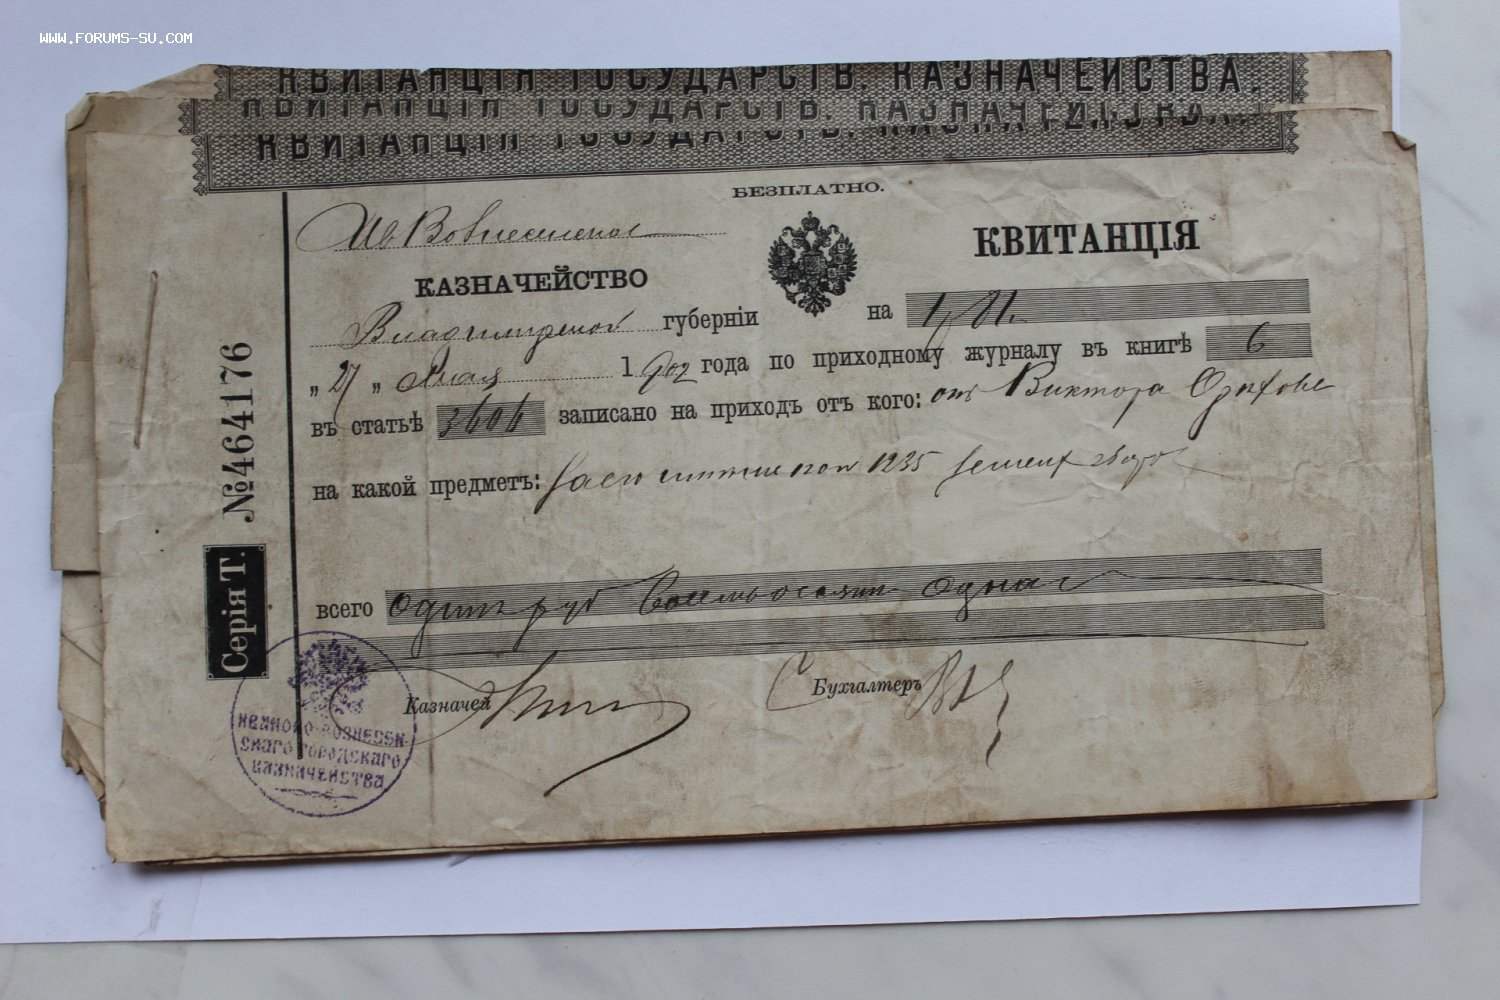 WWW.FORUMS-SU.COM
КВИТАНЦІЯ ГОСУДАРСТВ. КАЗНАЧЕЙСТВА.
КВИТАНЦІЯ ГОСУДАРСТВ. КАЗНАЧЕЙСТВА.
КВИТАНЦІЯ ГОСУДАРСТВ. КАЗНАЧЕЙСТВА.
БЕЗПЛАТНО.
Ив Вознесенское
КВИТАНЦІЯ
КАЗНАЧЕЙСТВО
Владимирской губерніи на 1 р 81 к.
„ 27 „ Мая 1902 года по приходному журналу въ книгѣ 6
въ статьѣ 3606 записано на приходъ отъ кого: отъ Виктора
на какой предметъ: 1235
всего Один руб Восемьдесятъ одна к
Казначей
Бухгалтеръ
Серія Т. №464176
ИВАНОВО-ВОЗНЕСЕН-
СКАГО ГОРОДСКАГО
КАЗНАЧЕЙСТВА